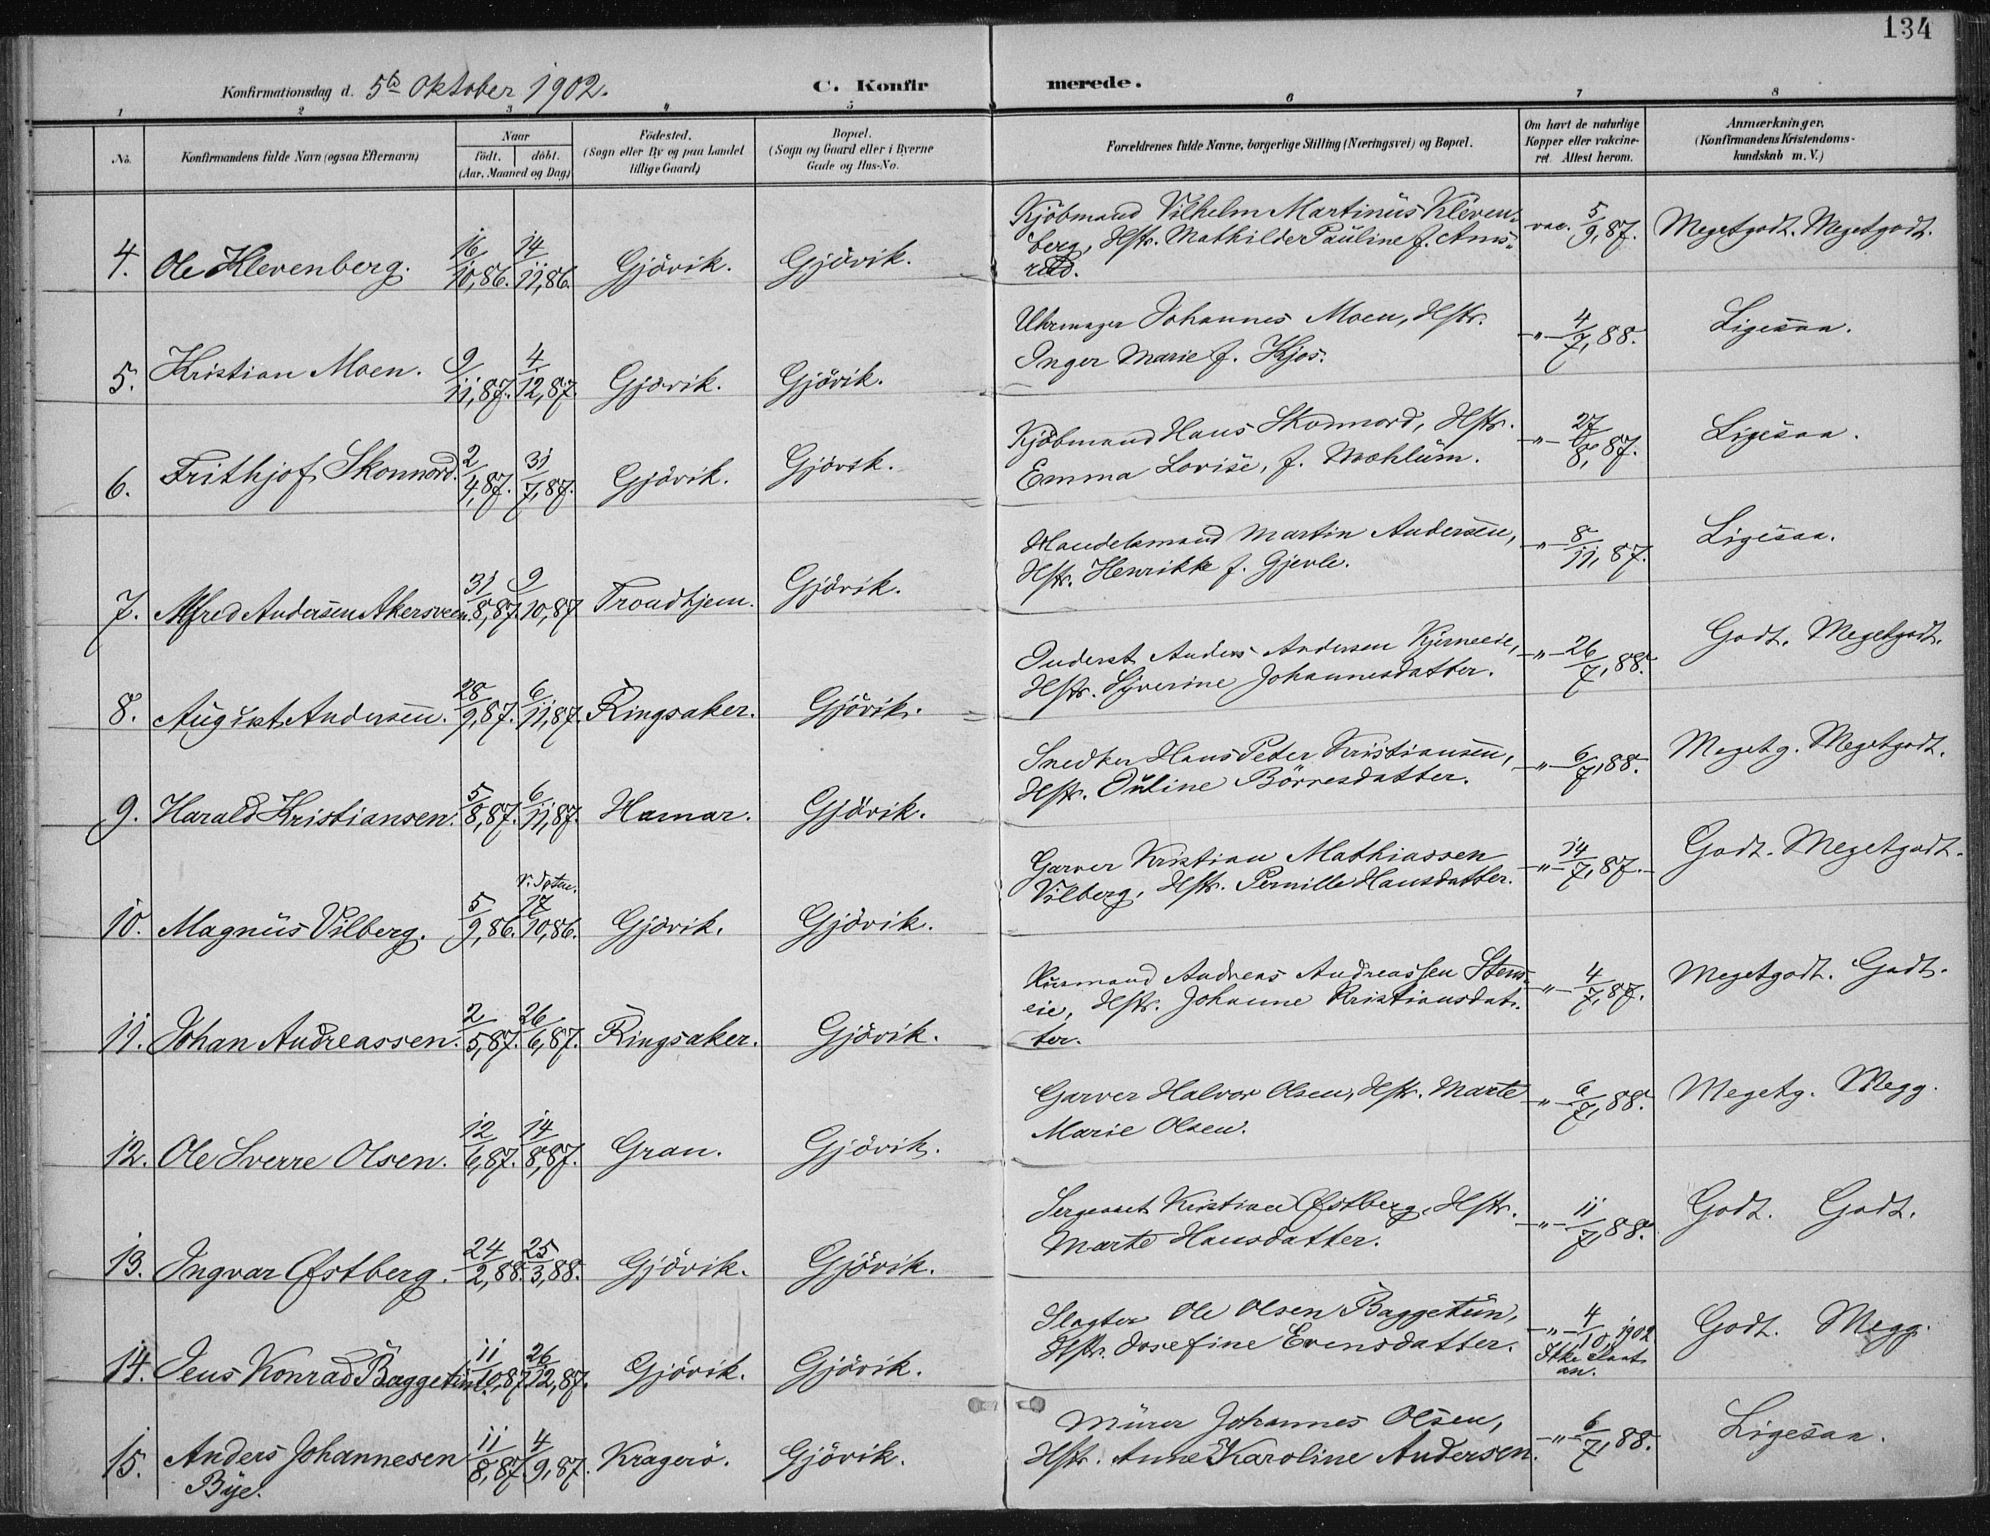 134
Konfirmationsdag d. 5te Oktober 1902. C. Konfirmerede.
1 2 3 4 5 6 7 8
No. Konfirmandens fulde Navn (ogsaa Efternavn) Naar födt. döbt. (Aar, Maaned og Dag) Födested. (Sogn eller By og paa Landet tillige Gaard) Bopæl. (Sogn og Gaard eller i Byerne Gade og Hus-No. Forældrenes fulde Navne, borgerlige Stilling (Næringsvei) og Bopæl. Om havt de naturlige Kopper eller vakcineret. Attest herom. Anmærkninger. (Konfirmandens Kristendomskundskab m. V.)
4. Ole Klevenberg. 16/10,86. 14/11,86. Gjövik. Gjövik. Kjöbmand Vilhelm Martinus Kleven- vac. 5/9,87. Megetgodt. Megetgodt.
berg, Hstr. Mathilde Pauline f. Ams-
rud.
5. Kristian Moen. 9/11,87. 4/12,87. Gjövik. Gjövik. Uhrmager Johannes Moen, Hstr. -"- 4/7,88. Ligesaa.
Inger Marie f. Kjos.
6. Frithjof Skonnord. 2/4,87. 31/7,87. Gjövik. Gjövik. Kjöbmand Hans Skonnord, Hstr. -"- 27/8,87. Ligesaa.
Emma Lovise, f. Mæhlum.
7. Alfred Andersen Akersveen. 31/8,87. 9/10,87 Trondhjem. Gjövik. Handelsmand Martin Andersen, -"- 8/11,87. Ligesaa.
Hstr. Henrikke f. Gjerle.
8. August Andersen. 28/9,87. 6/11,87. Ringsaker. Gjövik. Inderst Anders Andersen -"- 26/7,88. Godt. Megetgodt.
Hstr. Syverine Johannesdatter.
9. Harald Kristiansen. 5/8,87. 6/11,87. Hamar. Gjövik. Snedker Hans Peter Kristiansen, -"- 6/7,88. Megetg. Megetgodt.
Hstr. Oline Börresdatter.
10. Magnus Vilberg. 5/9,86. 17/10,86. Gjövik. Gjövik. Garver Kristian Mathiassen -"- 14/7,87. Godt. Megetgodt.
Vilberg, Hstr. Pernille Hansdatter.
11. Johan Andreassen. 2/5,87. 26/6,87. Ringsaker. Gjövik. Husmand Andreas Andreassen Stens- -"- 4/7,87. Megetgodt. Godt.
eie, Hstr. Johanne Kristiansdat-
ter.
12. Ole Sverre Olsen. 12/6,87. 14/8,87. Gran. Gjövik. Garver Halvor Olsen, Hstr. Marte -"- 6/7,88. Megetg. Megg.
Marie Olsen.
13. Ingvar Østberg. 24/2,88. 25/3,88. Gjövik. Gjövik. Sergeant Kristian Østberg, Hstr. -"- 11/7,88. Godt. Godt.
Marte Hansdatter.
14. Jens Konrad Baggetun. 11/10,87 26/12,87. Gjövik. Gjövik. Slagter Ole Olsen Baggetun, -"- 4/10,1902 Godt. Megg.
Hstr. Josefine Evensdatter. Ikke slaat
an.
15. Anders Johannesen 11/8,87. 4/9,87. Kragerö. Gjövik. Murer Johannes Olsen, -"- 6/7,88. Ligesaa.
Bye. Hstr. Anne Karoline Andersen.